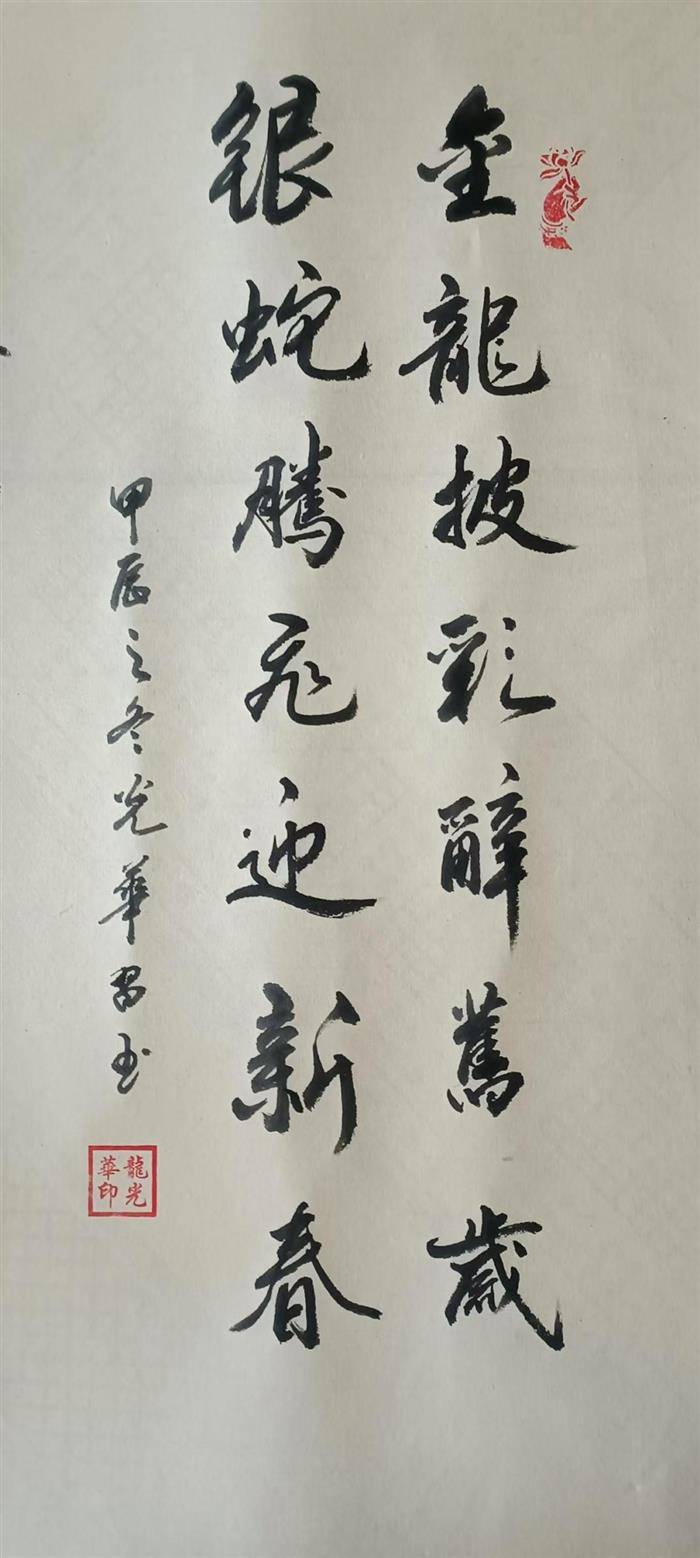 金龍披彩辭舊歲
銀蛇騰飛迎新春
甲辰之冬光華習书
龍光華印